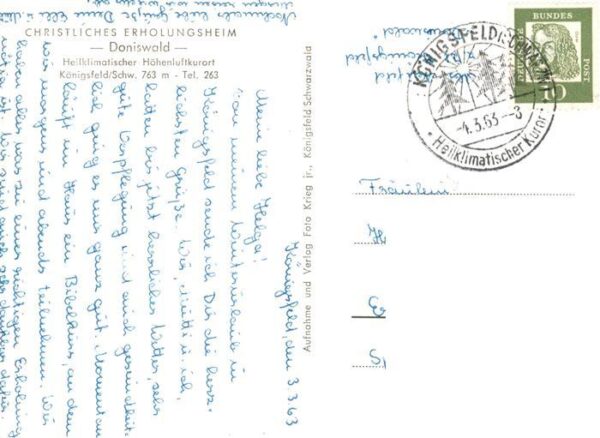 CHRISTLICHES ERHOLUNGSHEIM
— Doniswald —
Heilklimatischer Höhenluftkurort
Königsfeld/Schw. 763 m - Tel. 263
Königsfeld, den 3.3.63
Meine liebe Helga!
Von meinem Winterurlaub in
Königsfeld sende ich Dir die herz-
lichsten Grüße. Wir, Mutti u. ich,
hatten bis jetzt herrliches Wetter, sehr
gute Verpflegung und auch gesundheit-
lich ging es uns ganz gut. Momentan
läuft im Haus ein Bibelkurs, an dem
wir morgens und abends teilnehmen. Wir
haben alles was zu einer richtigen Erholung
Wir sind auch sehr dankbar dafür.
Nochmals liebe Grüße Deine
Aufnahme und Verlag Foto Krieg jr., Königsfeld Schwarzwald
KÖNIGSFELD (SCHWARZW)
-4.3.63--3
Heilklimatischer Kurort
DEUTSCHE
BUNDES
POST
10
Fräulein
H
G
S